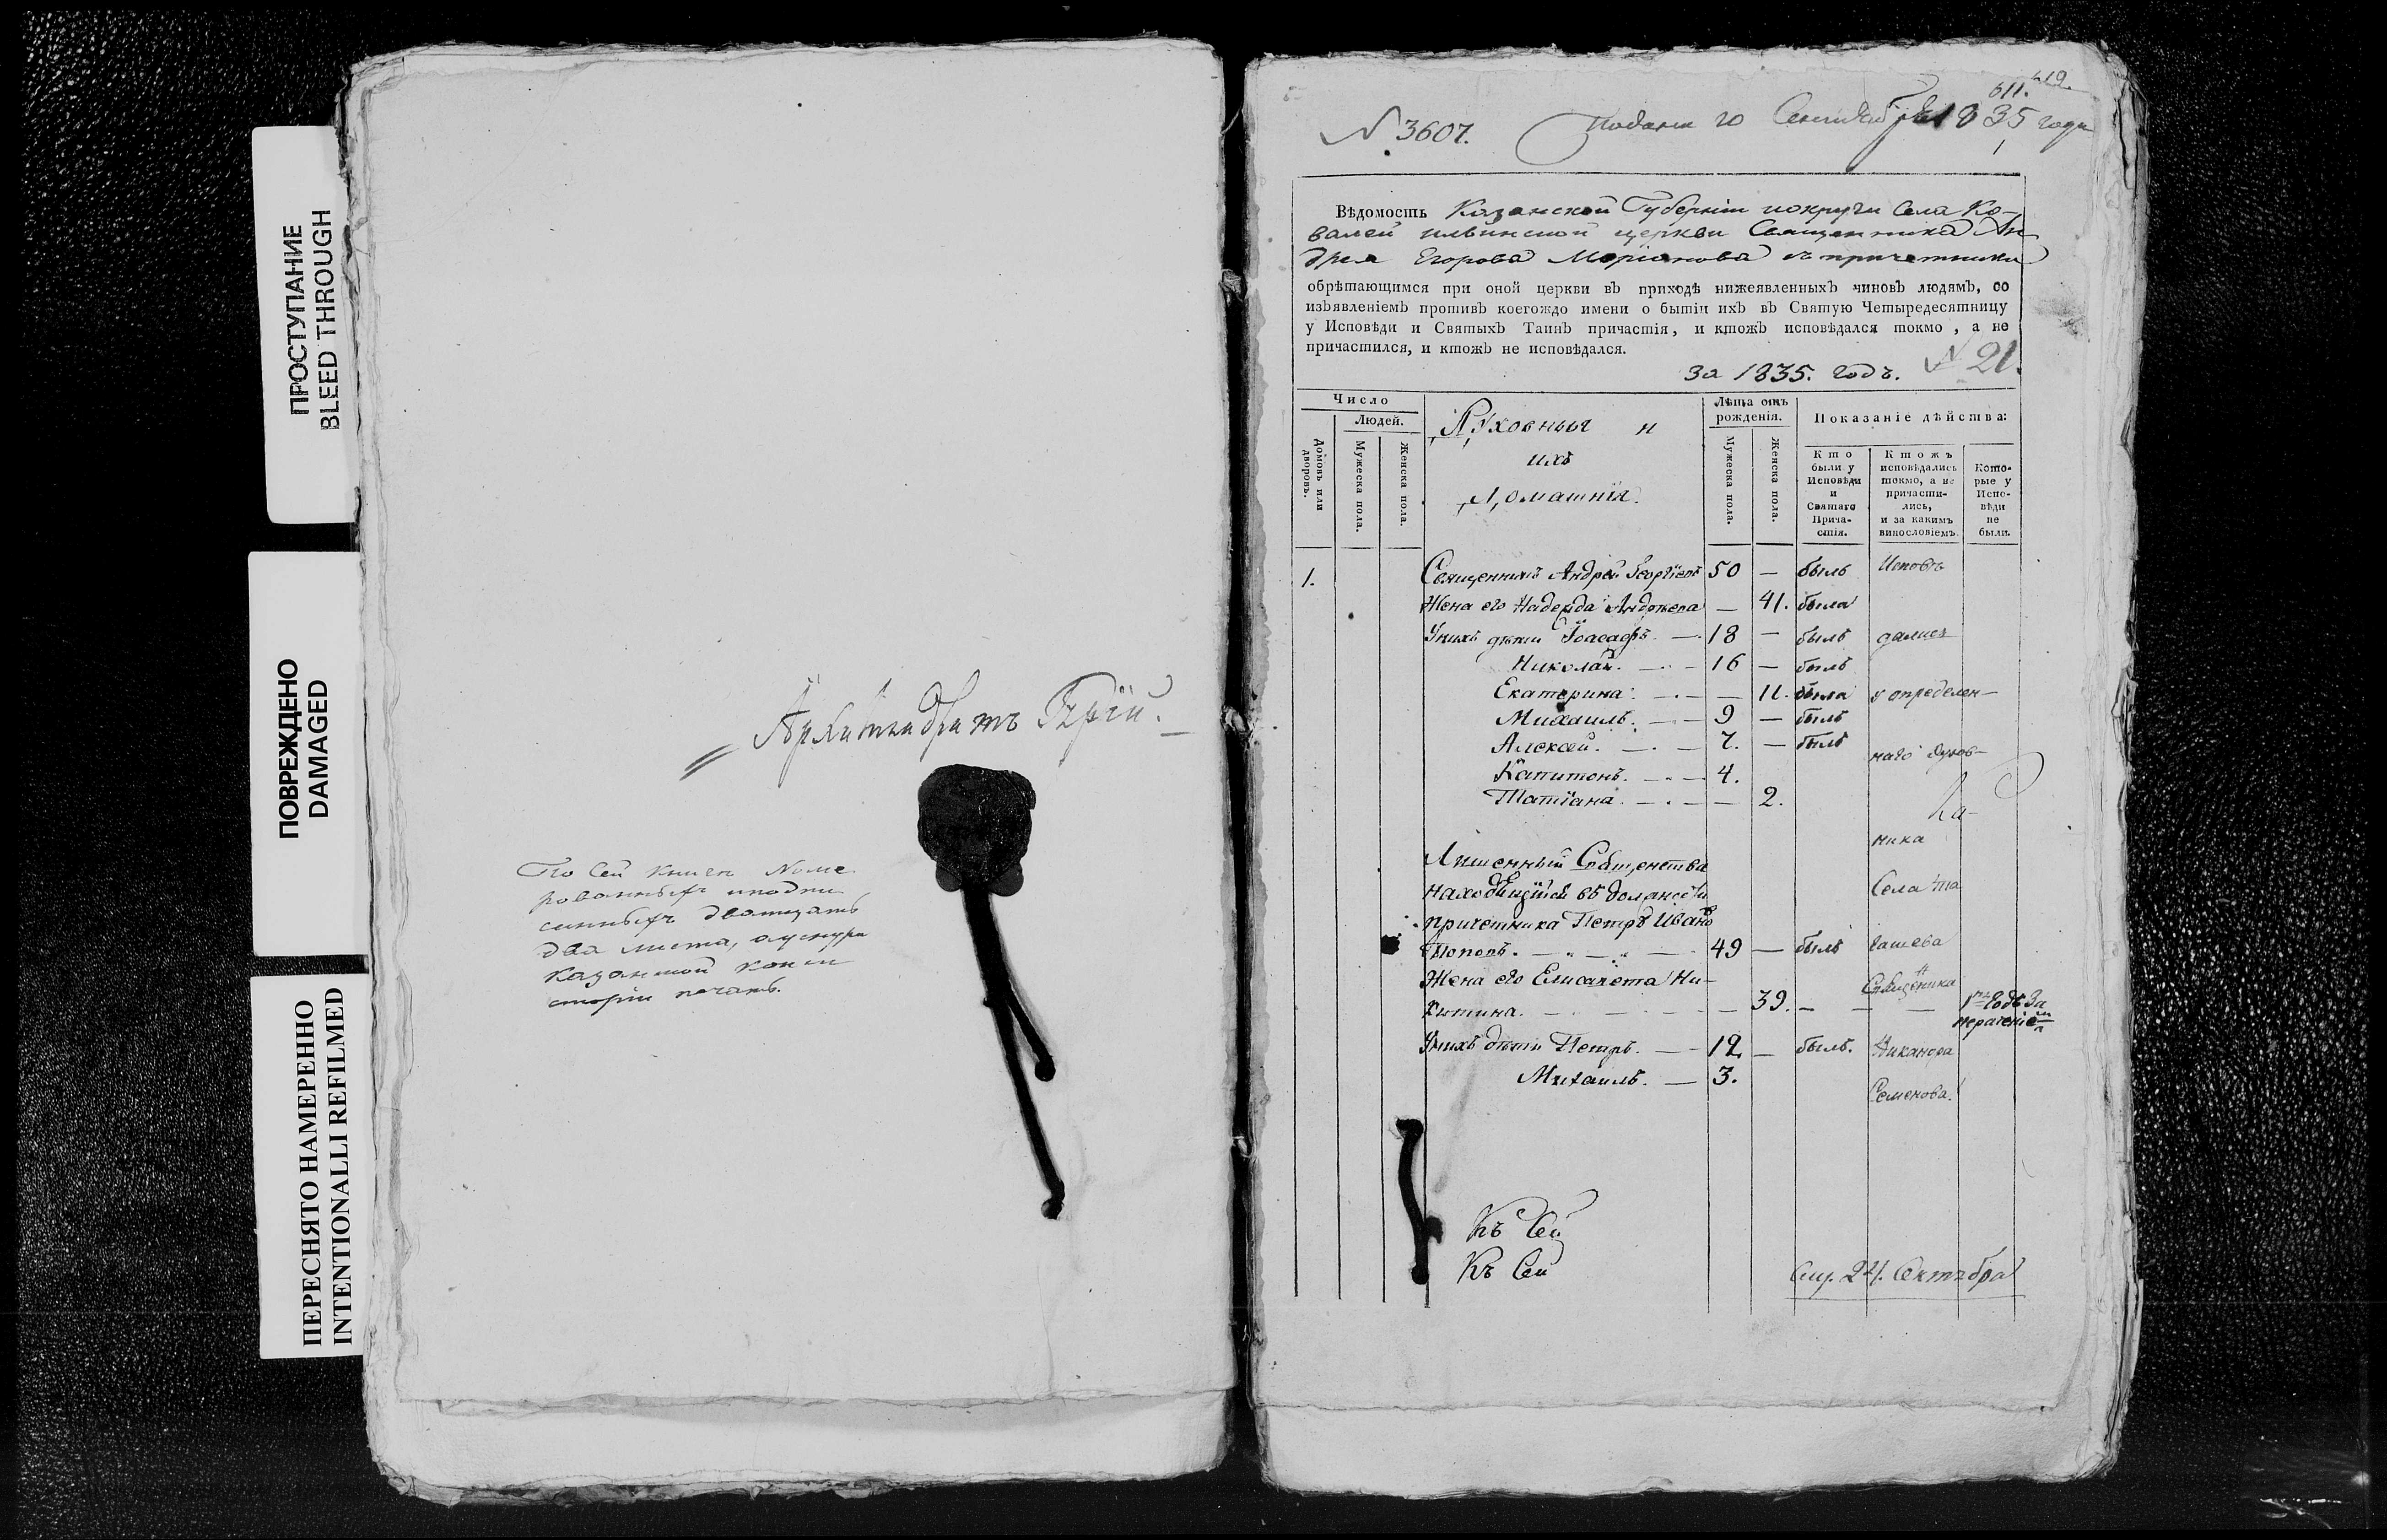 ПРОСТУПАНИЕ
BLEED THROUGH
ПОВРЕЖДЕНО
DAMAGED
ПЕРЕСНЯТО НАМЕРЕННО
INTENTIONALLI REFILMED
Архимандритъ Гурій.
По сей книге Номе
рованныхъ
дватцать
два листа,
Казанской конси
сторіи печать.
611.
N 3607.
Подана 10 Сентября 1835 года
Вѣдомость Казанской Губерніи иокруги Села Ко-
валей ильинской церкви Священника Ан
дрея Егорова съ причетники
обрѣтающимся при оной церкви въ приходѣ нижеявленныхъ чиновъ людямъ, со
изъявленіемъ противъ коегождо имени о бытіи ихъ въ Святую Четыредесятницу
у Исповѣди и Святыхъ Таинъ причастія, и ктожъ исповѣдался токмо, а не
причастился, и ктожъ не исповѣдался.
за 1835. годъ. N 21.
Число
Людей.
Домовъ или дворовъ.
Мужеска пола.
Женска пола.
Духовныя и
ихъ
Домашнія.
Лѣта отъ рожденія.
Мужеска пола.
Женска пола.
Показаніе дѣйства:
Кто были у Исповѣди и Святаго Прича-стія.
Ктожъ исповѣдались токмо, а не причасти-лись, и за какимъ винословіемъ.
Кото-рые у Испо-вѣди не были.
1. Священникъ Андрей Георгіевъ 50 — былъ Исповѣ
Жена его Надежда Андреева — 41. была
Унихъ дѣти Іоасафъ. — 18 — былъ дался
Николай. — 16 — былъ
Екатерина. — — 11. была у определен-
Михаилъ. — 9 — былъ
Алексей. — 7. — былъ наго духов-
Капитонъ. — 4.
Татіана. — — 2.
ника
Лишенный Священства
Находящійся въ должности Села Та
причетника Петръ Ивановъ
Поповъ. — 49 — былъ ташева
Жена его Елисавета Ни- Священника
китина. — 39. — — — 1 годъ За
нераченіе
Унихъ дѣти Петръ. — 12 — былъ. Никанора
Михаилъ. — 3.
Семенова.
Къ Сей
Къ Сей
24. Октября